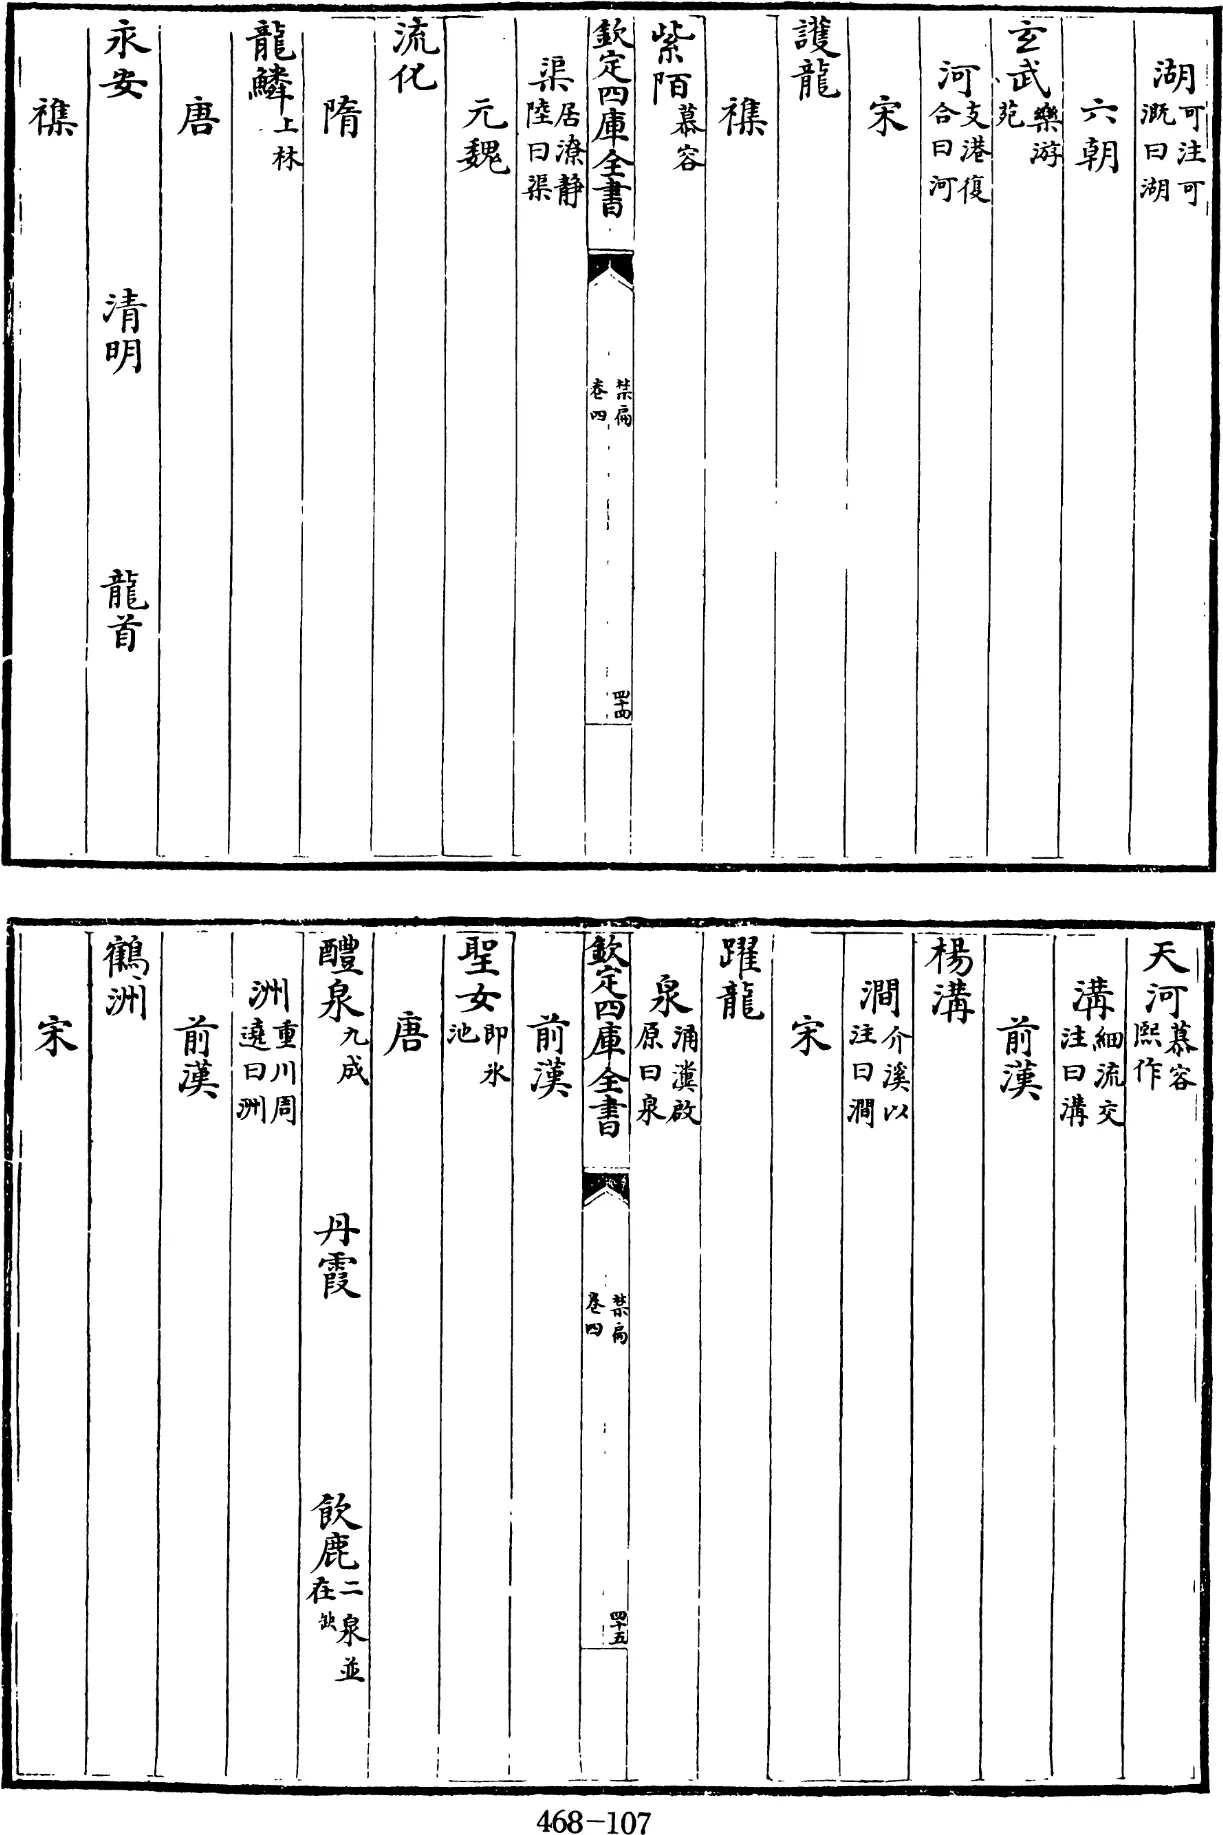 湖可注可溉曰湖
六朝
玄武樂游苑
河支港復合曰河
宋
護龍
襍
紫陌慕容
欽定四庫全書
禁扁
卷四
四十四
渠居潦静陸曰渠
元魏
流化
隋
龍鱗上林
唐
永安 清明 龍首
襍
天河慕容熙作
溝細流交注曰溝
前漢
楊溝
澗介溪以注曰澗
宋
躍龍
泉涌瀵啟原曰泉
欽定四庫全書
禁扁
卷四
四十五
前漢
聖女即氷池
唐
醴泉九成 丹霞 飲鹿二泉並在缺
洲重川周遶曰洲
前漢
鶴洲
宋
468-107